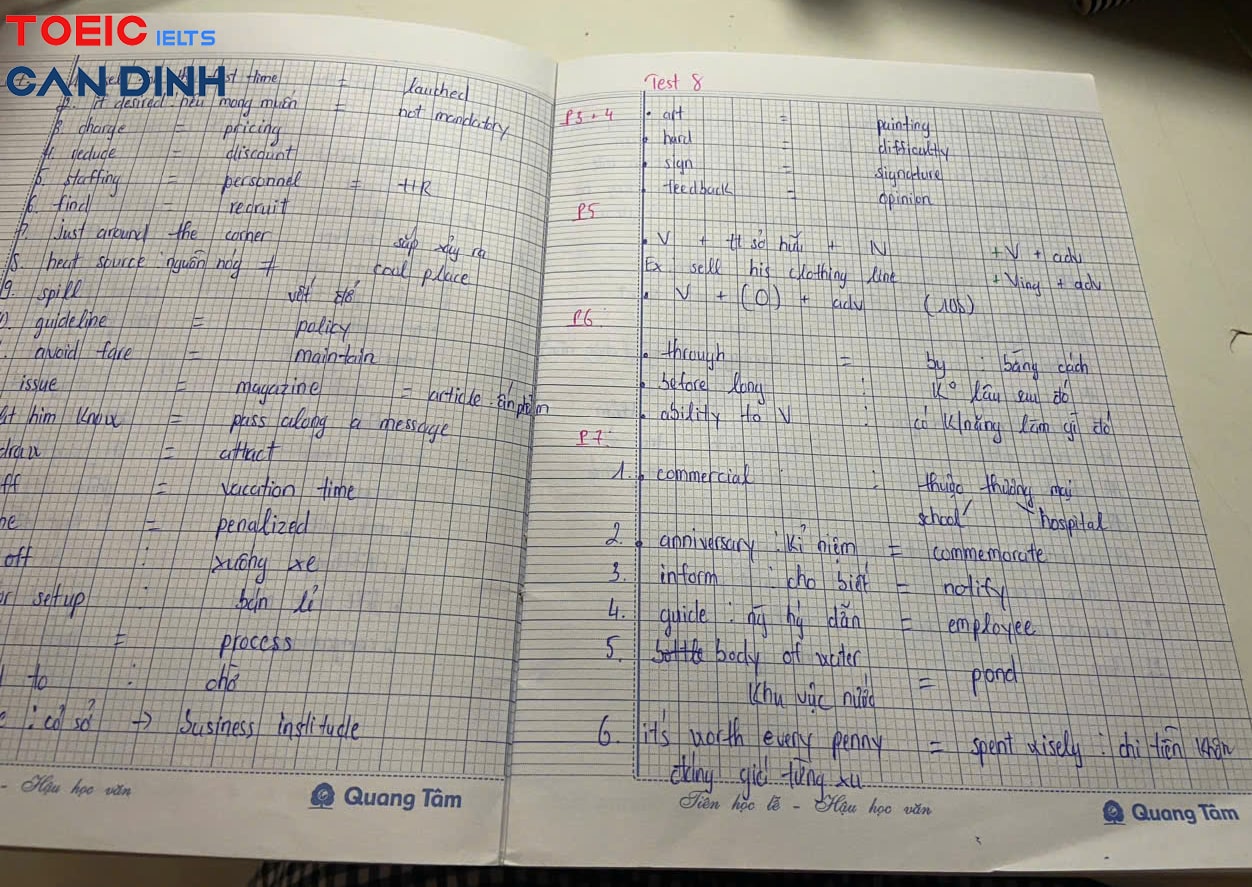 TOEIC IELTS
CAN DINH
st time = lauched
if desired nếu mong muốn = not mandatory
3. charge = pricing
4. reduce = discount
5. staffing = personnel = HR
6. find = recruit
7. Just around the corner sắp xảy ra
8. heat source : nguồn nóg ≠ cool place
9. spill vết đổ
guideline = policy
avoid fare = maintain
issue = magazine = article ấn phẩm
him know = pass along a message
draw = attact
ff = vacation time
ne = penalized
off : xuống xe
setup : bán lẻ
= process
to : chỗ
: cơ sở → business institude
- Hậu học văn
Quang Tâm
Test 8
P3+4
• art = painting
• hard = difficultly
• sign = signature
• feedback = opinion
P5
• V + tt sở hữu + N + V + adv
Ex sell his clothing line + Ving + adv
• V + (O) + adv (108)
P6
• through = by : bằng cách
• before long : K° lâu sau đó
• ability to V : có k/năng làm gì đó
P7
1. commercial : thuộc thương mại
school hospital
2. anniversary : kỉ niệm = commemorate
3. inform : cho biết = notify
4. guide : ng hg dẫn = employee
5. bottle body of water
Khu vực nước = pond
6. it's worth every penny = spent wisely : chi tiền khôn
đáng giá từng xu
Tiên học lễ - Hậu học văn
Quang Tâm